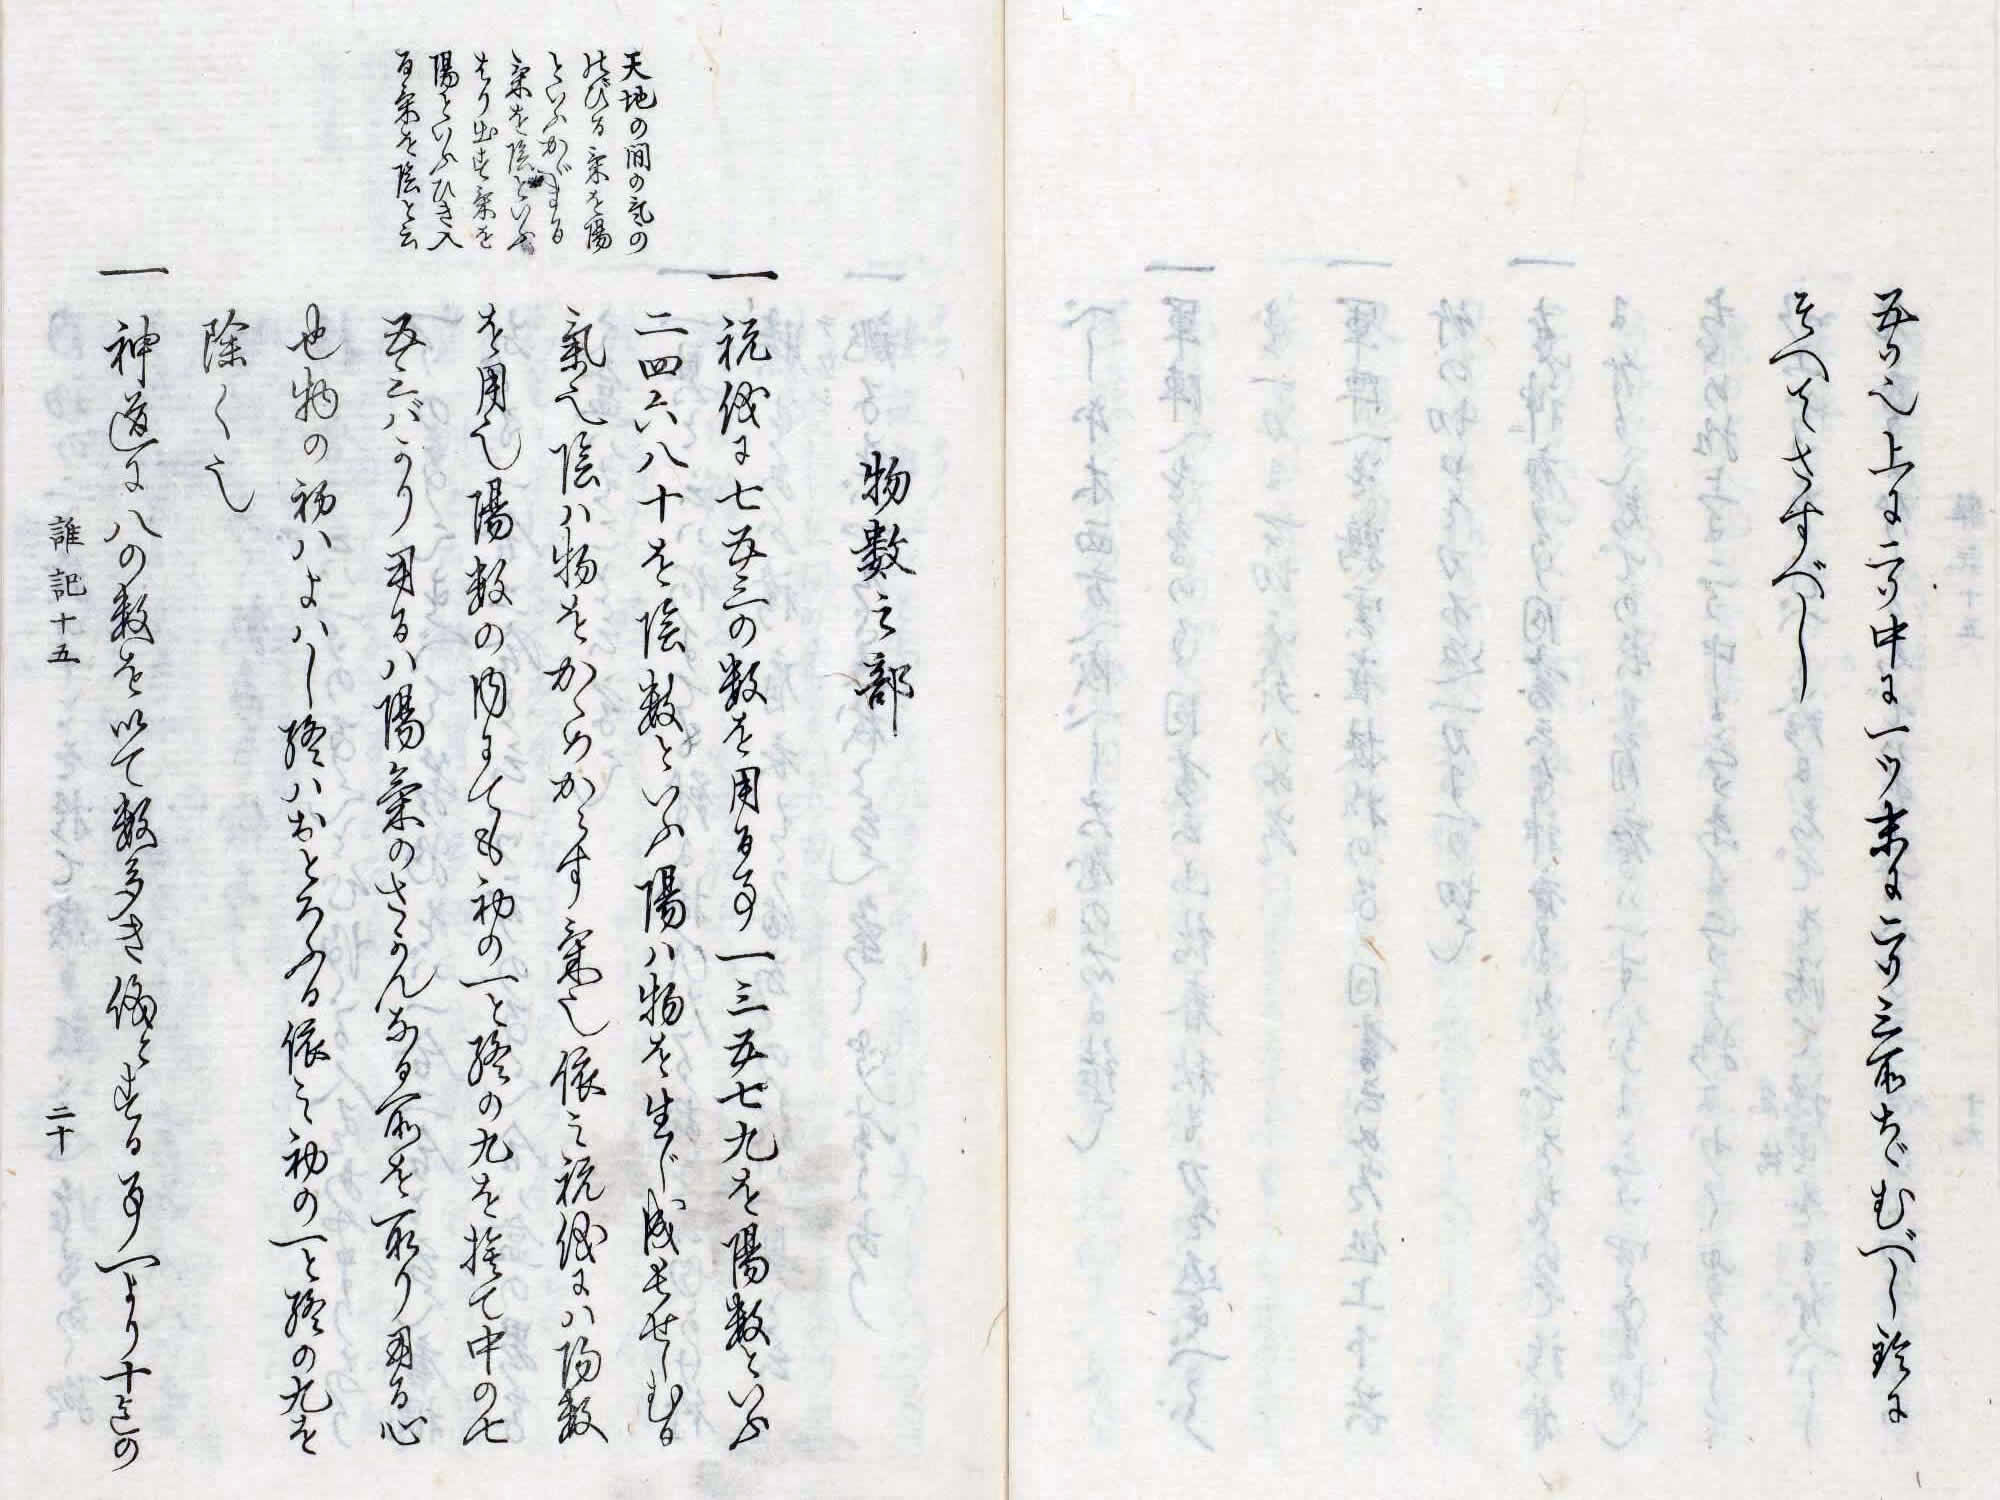 五ツ也上に二ツ中に一ツ末に二ツ三所ちゞむべし鈴に
そへてさすべし
物數之部
一 祝儀に七五三の数を用る事一三五七九を陽数といふ
二四六八十を陰数といふ陽ハ物を生じ成長せしむる
氣也陰ハ物をからめからす氣也依之祝儀にハ陽数
を用也陽数の内にても初の一と終の九を捨て中の七
五三バかり用るハ陽氣のさかんなる所を取り用る心
也物の初ハよハし終ハおとろふる依之初の一と終の九を
除く也
一 神道に八の数を以て数多き儀とする事一より十迄の
天地の間の氣の
のびる氣を陽
といふかゞまる
氣を陰といふ
はり出す氣を
陽といふひき入
る氣を陰と云
雜記十五
二十